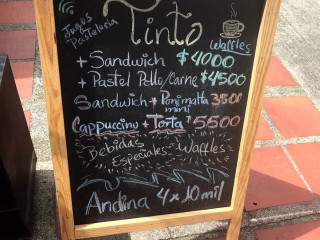 Jugos
Pasteleria
Tinto
Waffles
+ Sandwich $4000
+ Pastel Pollo/Carne $4500
Sandwich + Ponimalta 3500
mini
Cappuccino + Torta $5500
Bebidas
Especiales Waffles
Andina 4x10mil